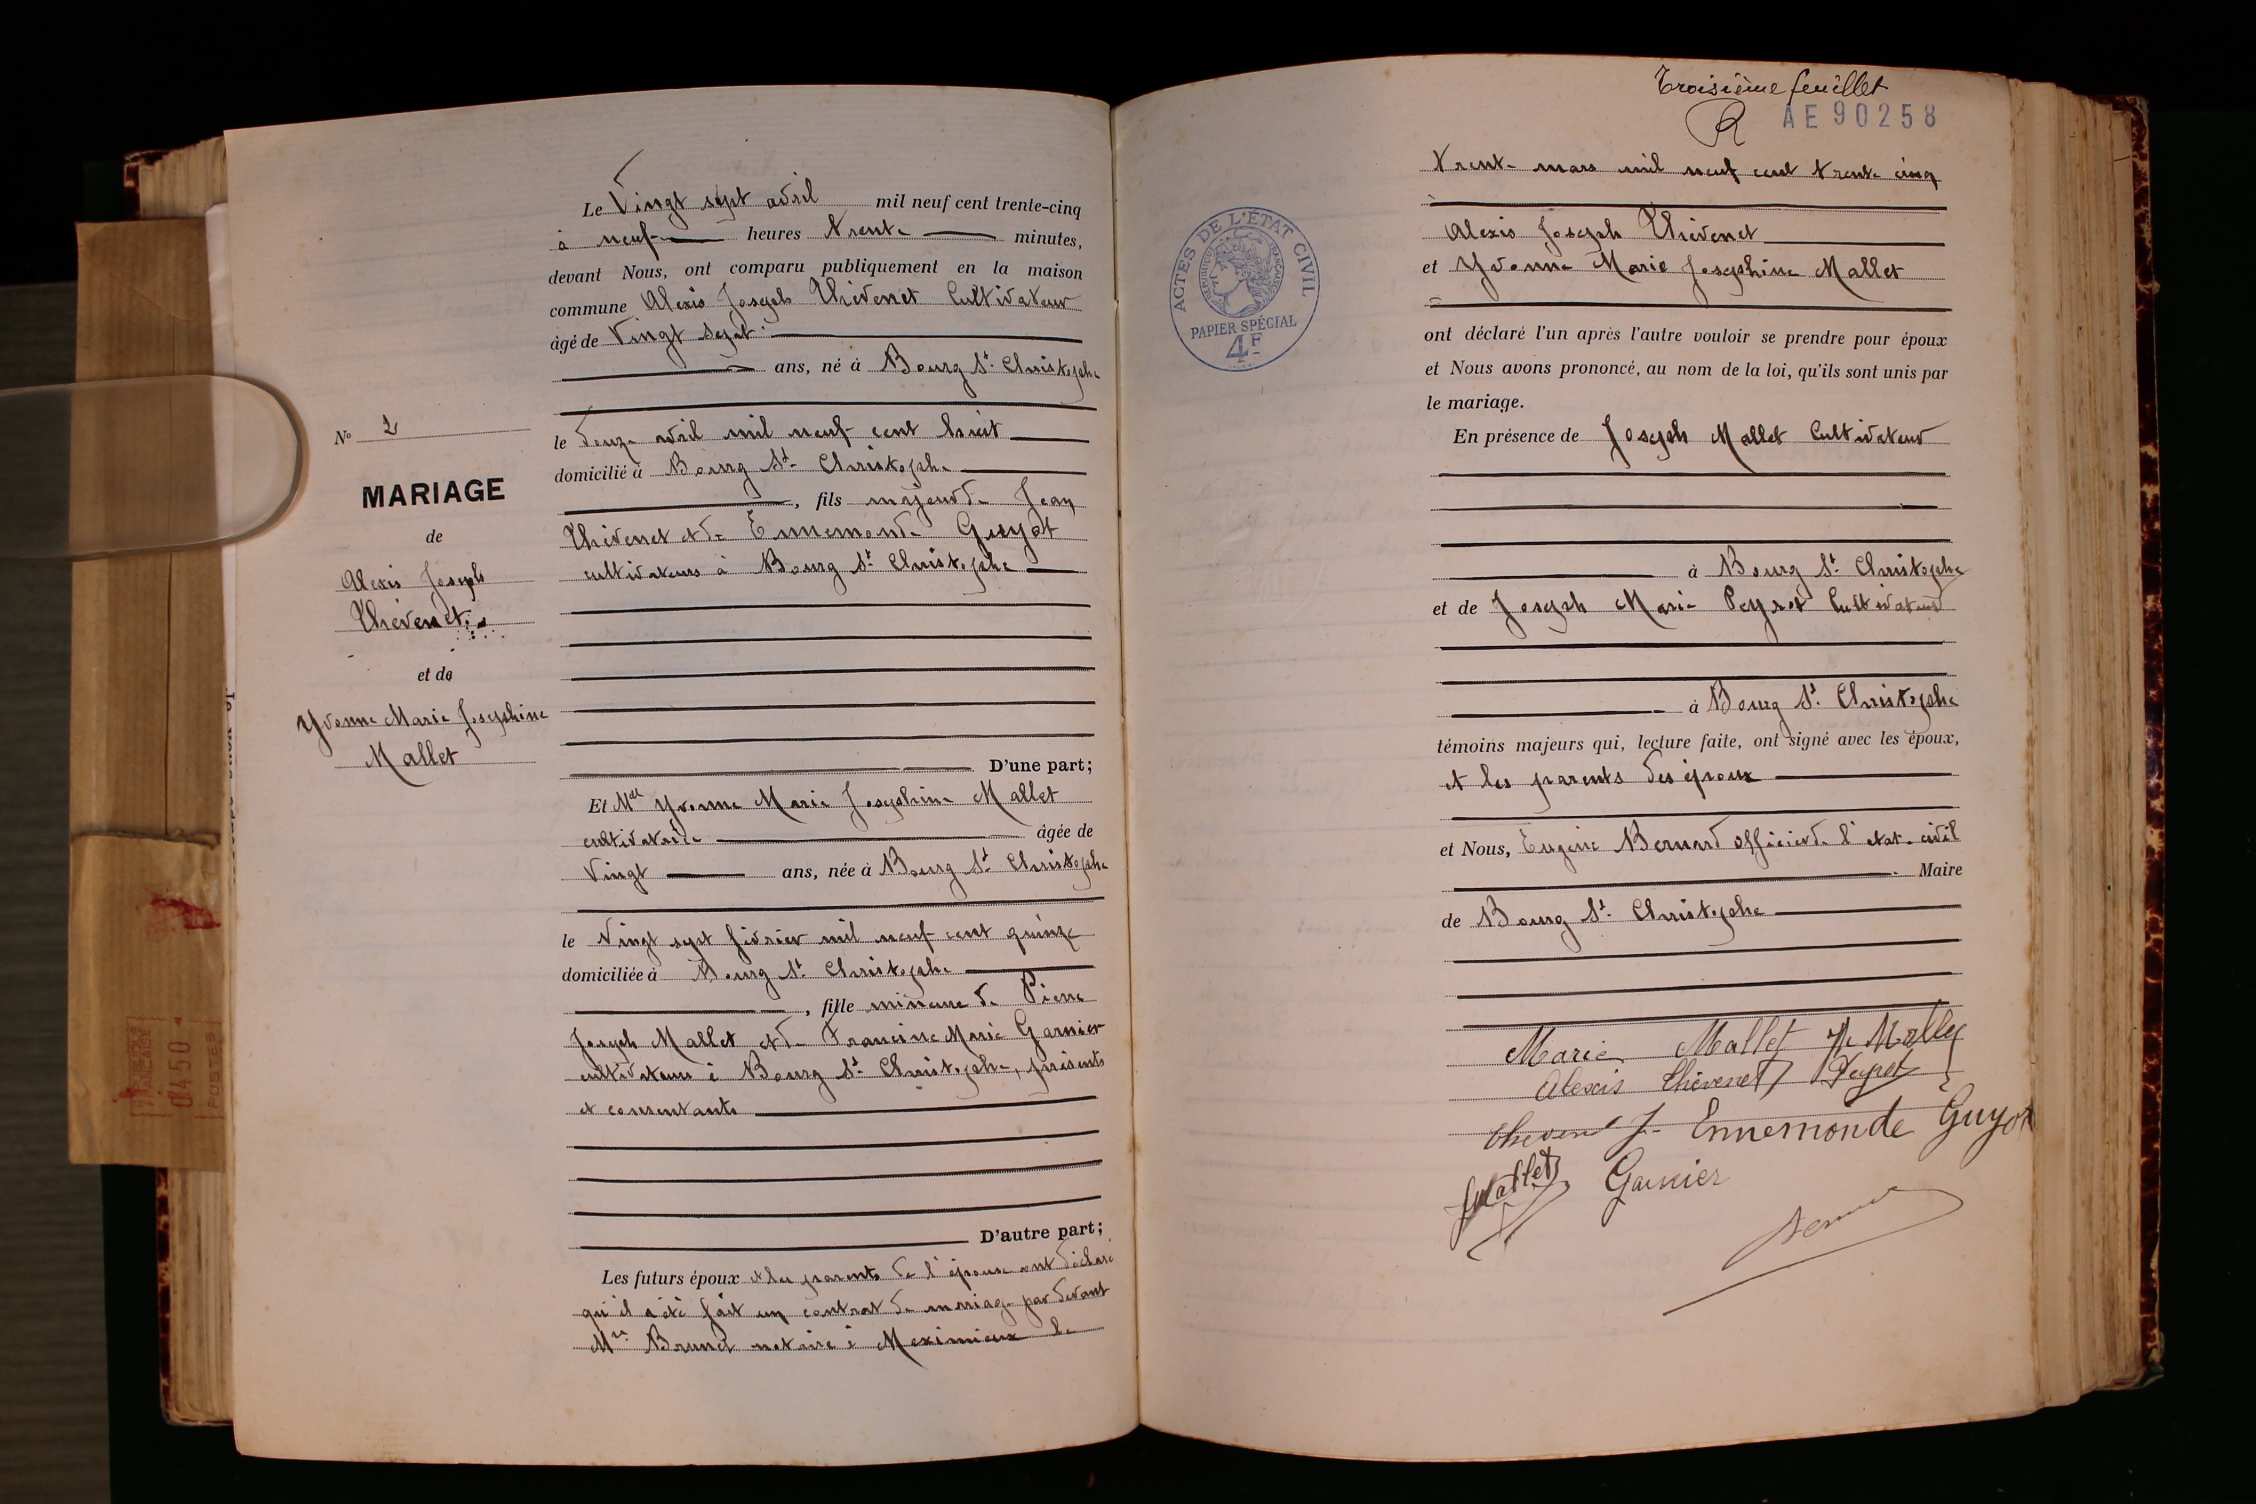 N° 2
MARIAGE
de
Alexis Joseph
Thévenet
et de
Yvonne Marie Josephine
Mallet
Le Vingt sept avril mil neuf cent trente-cinq
à neuf heures trente minutes,
devant Nous, ont comparu publiquement en la maison
commune Alexis Joseph Thévenet Cultivateur
âgé de Vingt sept
ans, né à Bourg St. Christophe
le douze avril mil neuf cent huit
domicilié à Bourg St. Christophe
, fils majeur de Jean
Thévenet et de Ennemonde Guyot
cultivateurs à Bourg St. Christophe
D'une part;
Et Mell Yvonne Marie Josephine Mallet
cultivatrice âgée de
Vingt ans, née à Bourg St. Christophe
le Vingt sept février mil neuf cent quinze
domiciliée à Bourg St. Christophe
, fille mineure de Pierre
Joseph Mallet et de Francine Marie Garnier
cultivateurs à Bourg St. Christophe, présents
et consentants
D'autre part;
Les futurs époux et les parents de l'épouse ont déclaré
qu'il a été fait un contrat de mariage par devant
Me Brunet notaire à Meximieux le
Troisième feuillet
R AE90258
trente mars mil neuf cent trente cinq
Alexis Joseph Thévenet
et Yvonne Marie Josephine Mallet
ont déclaré l'un après l'autre vouloir se prendre pour époux
et Nous avons prononcé, au nom de la loi, qu'ils sont unis par
le mariage.
En présence de Joseph Mallet Cultivateur
à Bourg St. Christophe
et de Joseph Marie Peyret Cultivateur
à Bourg St. Christophe
témoins majeurs qui, lecture faite, ont signé avec les époux,
et les parents des époux
et Nous, Eugène Bernard officier de l'état civil
Maire
de Bourg St. Christophe
ACTES DE L'ÉTAT CIVIL
RÉPUBLIQUE FRANÇAISE
PAPIER SPÉCIAL
4F
Marie Mallet
Alexis Thévenet Peyret
Thevenet J. Ennemonde Guyot
J Mallet Garnier
Bernard
0450
POSTES